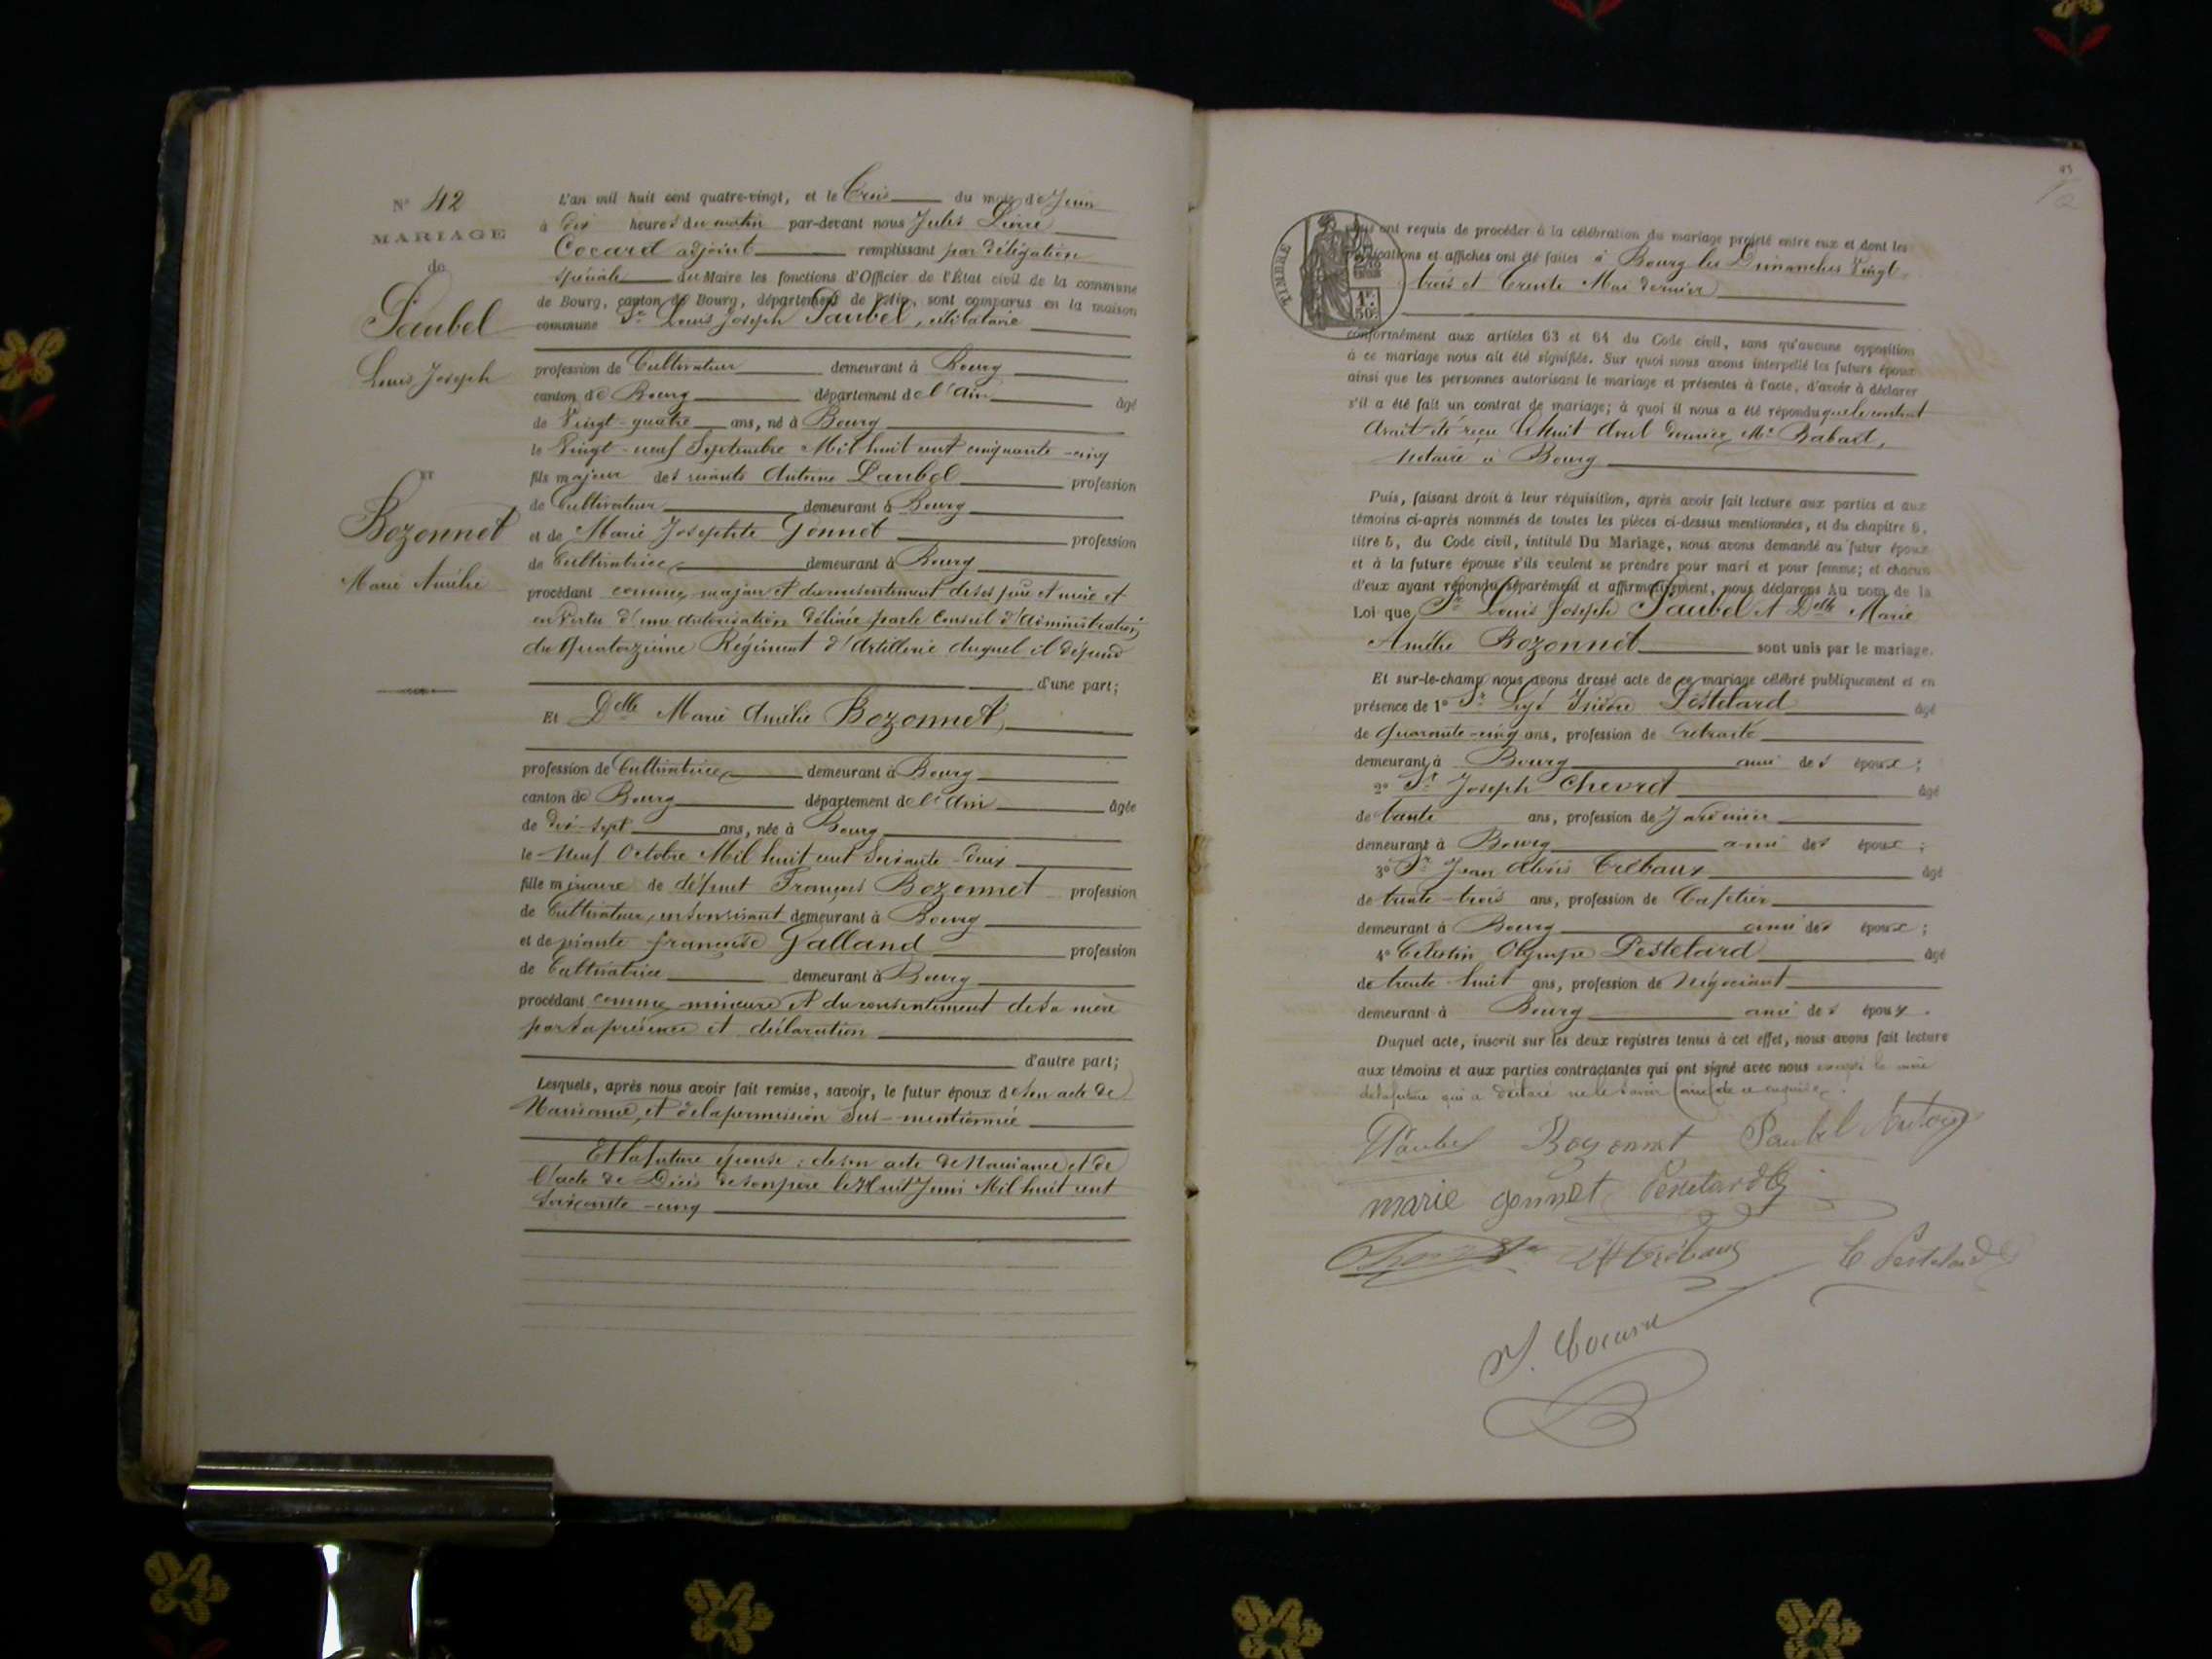 N° 42
MARIAGE
de
Paubel
Louis Joseph
ET
Bozonnet
Marie Amélie
L'an mil huit cent quatre-vingt, et le trois du mois de Juin
à dix heures du matin par-devant nous Jules Pierre
Cocard adjoint remplissant par délégation
spéciale du Maire les fonctions d'Officier de l'État civil de la commune
de Bourg, canton de Bourg, département de l'Ain, sont comparus en la maison
commune Sr Louis Joseph Paubel, célibataire
profession de Cultivateur demeurant à Bourg
canton de Bourg département de l'Ain âgé
de Vingt-quatre ans, né à Bourg
le Vingt-neuf Septembre Mil huit cent cinquante-cinq
fils majeur des vivants Antoine Paubel profession
de Cultivateur demeurant à Bourg
et de Marie Josephte Gonnet profession
de Cultivatrice demeurant à Bourg
procédant comme majeur et du consentement de ses père et mère et
en vertu d'une autorisation délivrée par le Conseil d'Administration
du Quatorzième Régiment d'Artillerie duquel il dépend
d'une part;
Et Delle Marie Amélie Bozonnet,
profession de Cultivatrice demeurant à Bourg
canton de Bourg département de l'Ain âgée
de dix-sept ans, née à Bourg
le Neuf Octobre Mil huit cent soixante-deux
fille mineure de défunt François Bozonnet profession
de Cultivateur, en son vivant demeurant à Bourg
et de vivante françoise Galland profession
de Cultivatrice demeurant à Bourg
procédant comme mineure et du consentement de sa mère
par sa présence et déclaration
d'autre part;
Lesquels, après nous avoir fait remise, savoir, le futur époux de son acte de
Naissance, et de la permission sus-mentionnée
Et la future épouse: de son acte de Naissance et de
l'acte de Décès de son père le huit Juin Mil huit cent
soixante-cinq
TIMBRE
1F.
50c.
ont requis de procéder à la célébration du mariage projeté entre eux et dont les
publications et affiches ont été faites à Bourg les Dimanches Vingt
trois et trente Mai dernier
conformément aux articles 63 et 64 du Code civil, sans qu'aucune opposition
à ce mariage nous ait été signifiée. Sur quoi nous avons interpellé les futurs époux
ainsi que les personnes autorisant le mariage et présentes à l'acte, d'avoir à déclarer
s'il a été fait un contrat de mariage; à quoi il nous a été répondu que le contrat
avait été reçu le huit Avril dernier Me Rabart,
Notaire à Bourg
Puis, faisant droit à leur réquisition, après avoir fait lecture aux parties et aux
témoins ci-après nommés de toutes les pièces ci-dessus mentionnées, et du chapitre 6,
titre 5, du Code civil, intitulé Du Mariage, nous avons demandé au futur époux
et à la future épouse s'ils veulent se prendre pour mari et pour femme; et chacun
d'eux ayant répondu séparément et affirmativement, nous déclarons Au nom de la
Loi que Sr Louis Joseph Paubel et Delle Marie
Amélie Bozonnet sont unis par le mariage.
Et sur-le-champ nous avons dressé acte de ce mariage célébré publiquement et en
présence de 1° Sr Isidore Pestelard âgé
de quarante-cinq ans, profession de retraité
demeurant à Bourg ami des époux;
2° Sr Joseph Chevret âgé
de trente ans, profession de Jardinier
demeurant à Bourg ami des époux;
3° Sr Jean Alexis Trébaux âgé
de trente-trois ans, profession de Cafetier
demeurant à Bourg ami des époux;
4° Célestin Olympe Pestelard âgé
de trente-huit ans, profession de Négociant
demeurant à Bourg ami des époux.
Duquel acte, inscrit sur les deux registres tenus à cet effet, nous avons fait lecture
aux témoins et aux parties contractantes qui ont signé avec nous excepté la mère
de la future qui a déclaré ne le savoir faire de ce enquise.
Paubel Bozonnet Paubel Antoine
marie gonnet Pestelard
Trébaux C Pestelard
J. Cocard